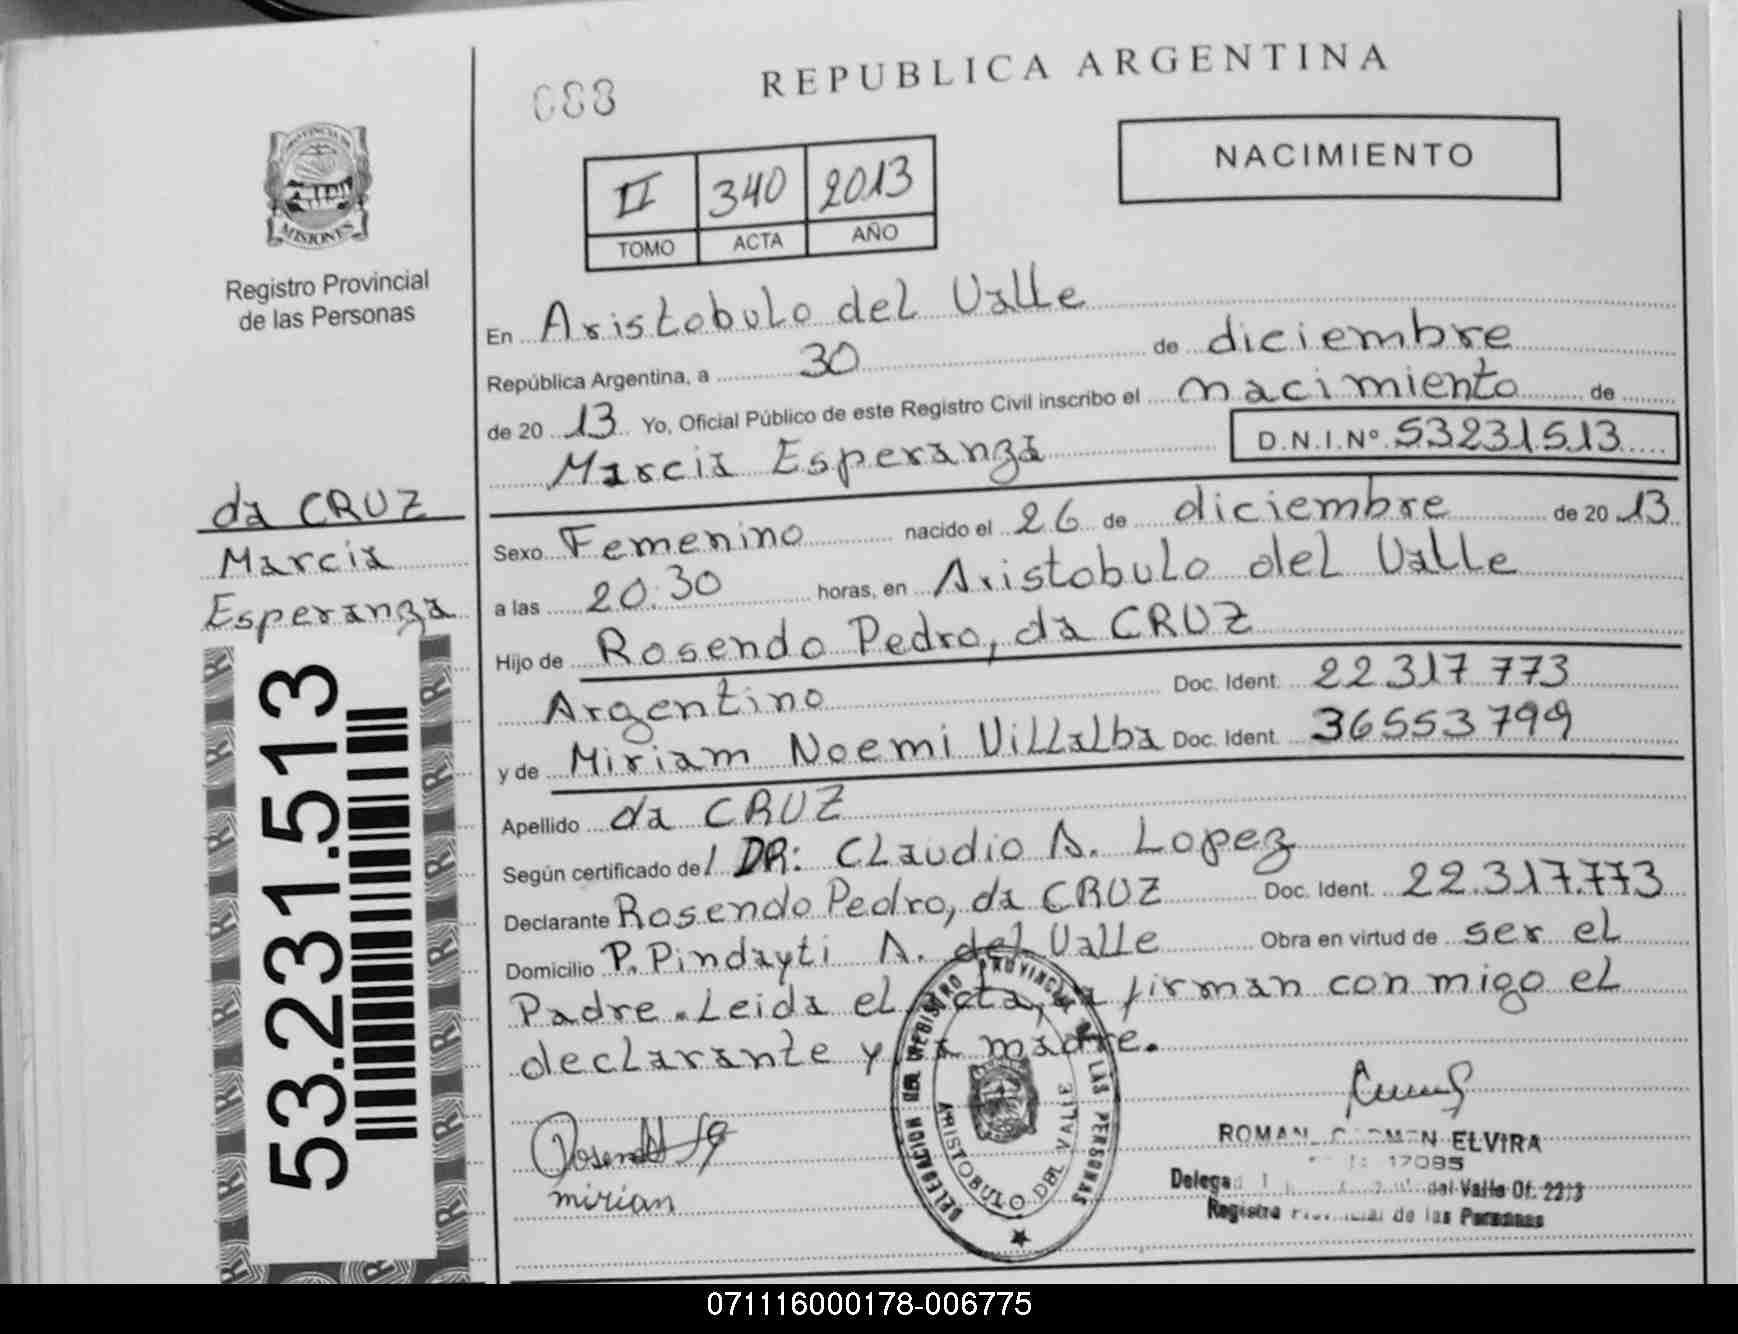 088
REPUBLICA ARGENTINA
PROVINCIA DE
MISIONES
Registro Provincial
de las Personas
NACIMIENTO
II 340 2013
TOMO ACTA AÑO
En Aristobulo del Valle
República Argentina, a 30 de diciembre
de 20 13 Yo, Oficial Público de este Registro Civil inscribo el nacimiento de
Marcia Esperanza D.N.I.Nº 53231513
da CRUZ
Marcia
Esperanza
53.231.513
Sexo Femenino nacido el 26 de diciembre de 20 13
a las 20:30 horas, en Aristobulo del Valle
Hijo de Rosendo Pedro, da CRUZ
Argentino Doc. Ident. 22 317 773
y de Miriam Noemi Villalba Doc. Ident. 36553799
Apellido da CRUZ
Según certificado de DR: Claudio A. Lopez
Declarante Rosendo Pedro, da CRUZ Doc. Ident. 22.317.773
Domicilio P. Pindayti A. del Valle Obra en virtud de ser el
Padre. Leida el firman con migo el
declarante y madre.
mirian
DELEGACION DEL REGISTRO PROVINCIAL DE LAS PERSONAS
ARISTOBULO DEL VALLE
ROMAN ELVIRA
17095
del Valle Of. 2213
Registro de las Personas
071116000178-006775